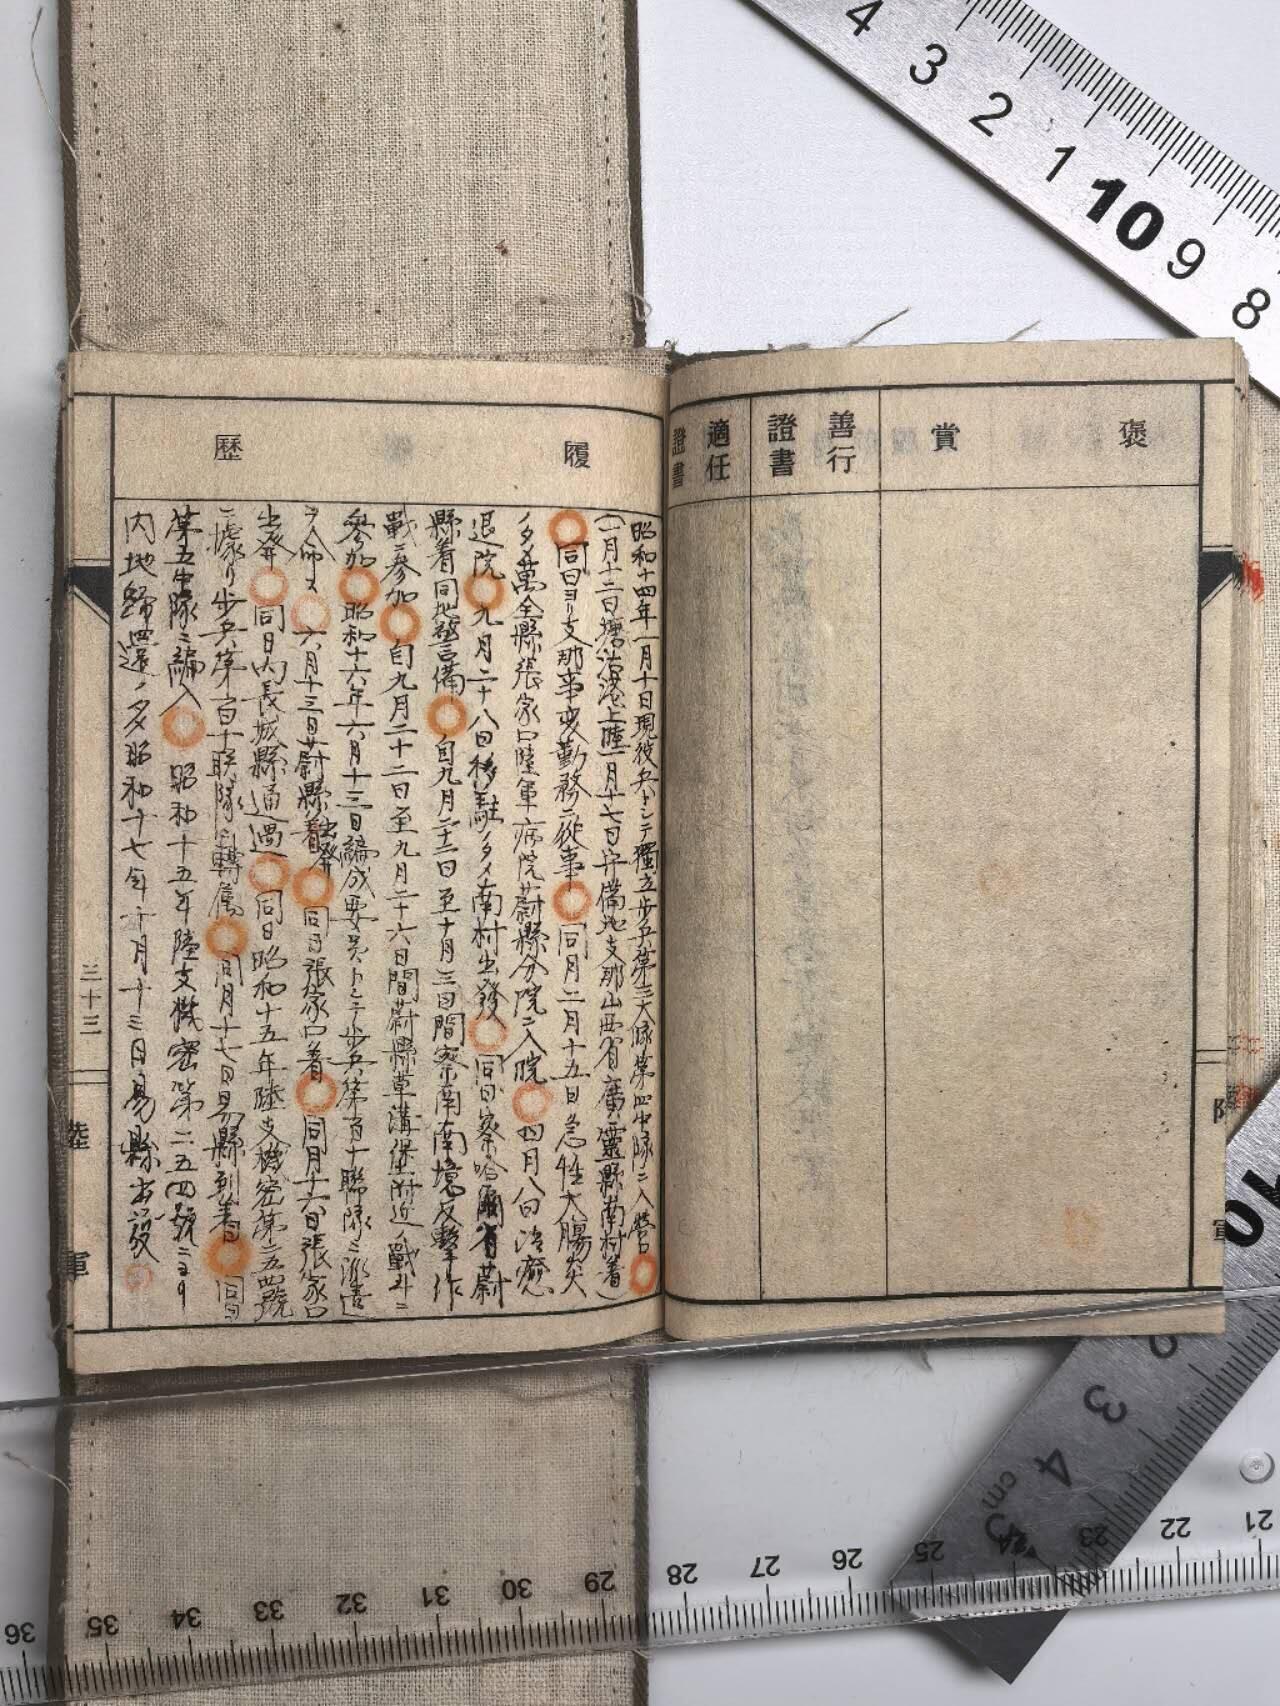 褒
賞
善行
證書
適任
證書
履
歷
昭和十四年一月十日現役兵トシテ獨立步兵第三大隊第四中隊ニ入營
(一月十二日塘沽港上陸一月十七日守備地支那山西省廣靈縣南村着)
同日ヨリ支那事変勤務ニ從事 同月二月十五日急性大腸炎
ノタメ萬全縣張家口陸軍病院蔚縣分院ニ入院 四月八日治癒
退院 九月二十八日移駐ノタメ南村出發 同日察哈爾省蔚
縣着同地警備 自九月二十二日至十月三日間察南南境反擊作
戰ニ參加 自九月二十二日至九月二十六日間蔚縣草溝堡附近ノ戰斗ニ
參加 昭和十六年六月十三日編成要員トシテ步兵第百十聯隊ニ派遣
ヲ命ス 六月十三日蔚縣出発 同日張家口着 同月十六日張家口
出発 同日內長城縣通過 同日昭和十五年陸支機密第二五四號
ニ據リ步兵第百十联隊ニ轉属 同月十七日易縣到着 同日
第五中隊ニ編入 昭和十五年陸支機密第二五四號ニヨリ
內地歸還ノタメ昭和十七年十月十三日易縣出發
三十三
陸
軍
陸
軍
4 3 2 1 10 9 8
3 4
cm
36 35 34 33 32 31 30 29 28 27 26 25 24 23 22 21